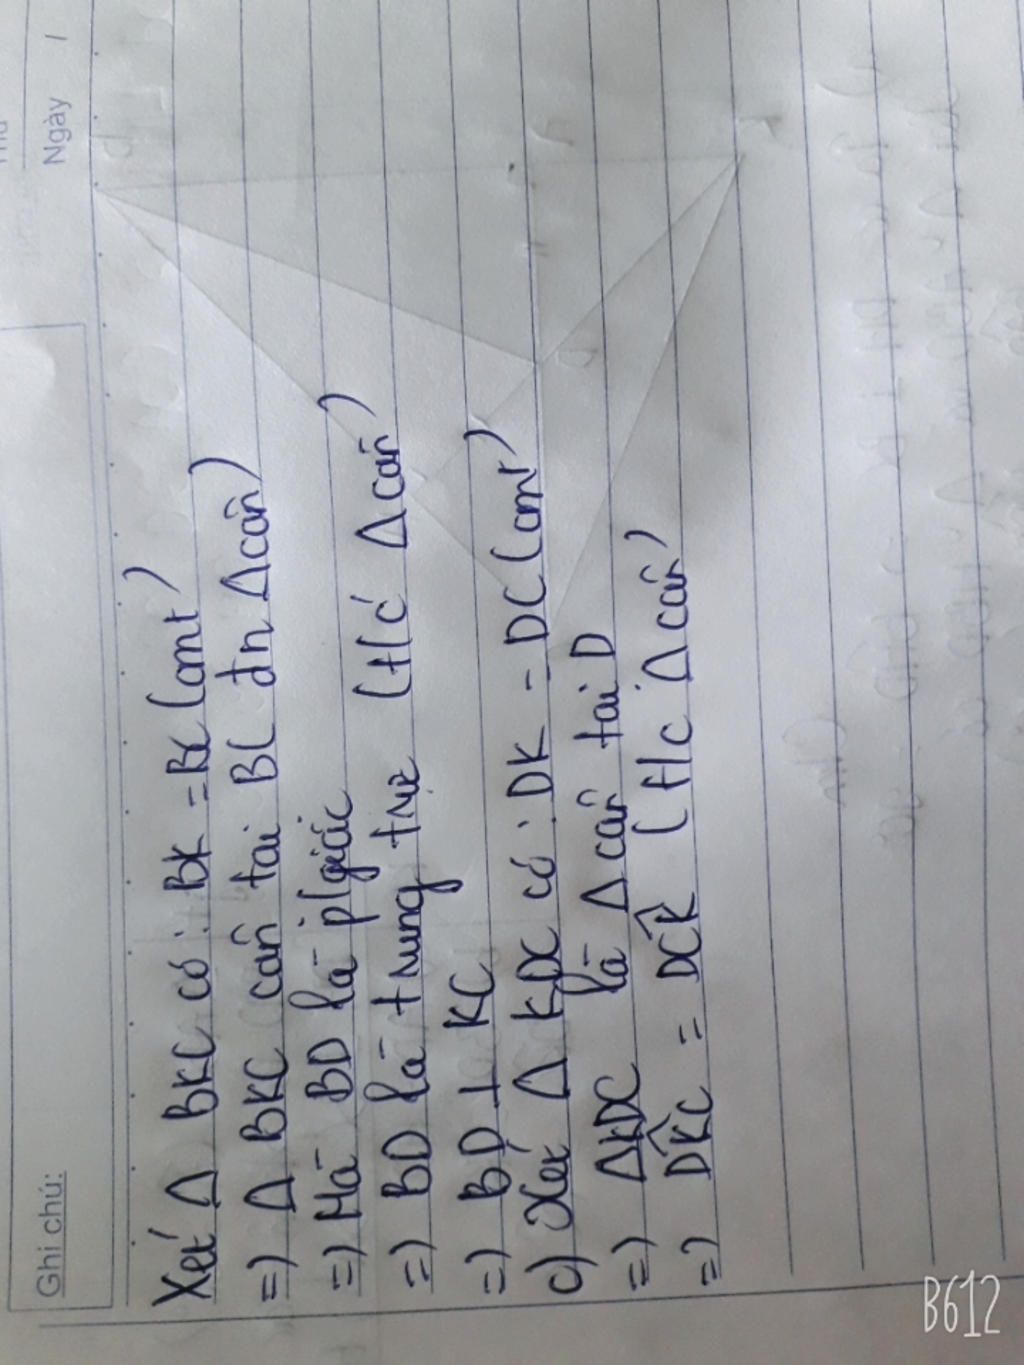 Ngày /
Ghi chú:
Xét Δ BKC có : BK = BC (cmt)
=) Δ BKC cân tại B( đn Δ cân)
=) Mà BD là p/giác
=) BD là trung trực (t/c Δ cân)
=) BD ⊥ KC
c) Xét Δ KDC có : DK = DC (cmt)
=) ΔKDC là Δ cân tại D
=) DK̂C = DĈK (t/c Δ cân)
B612